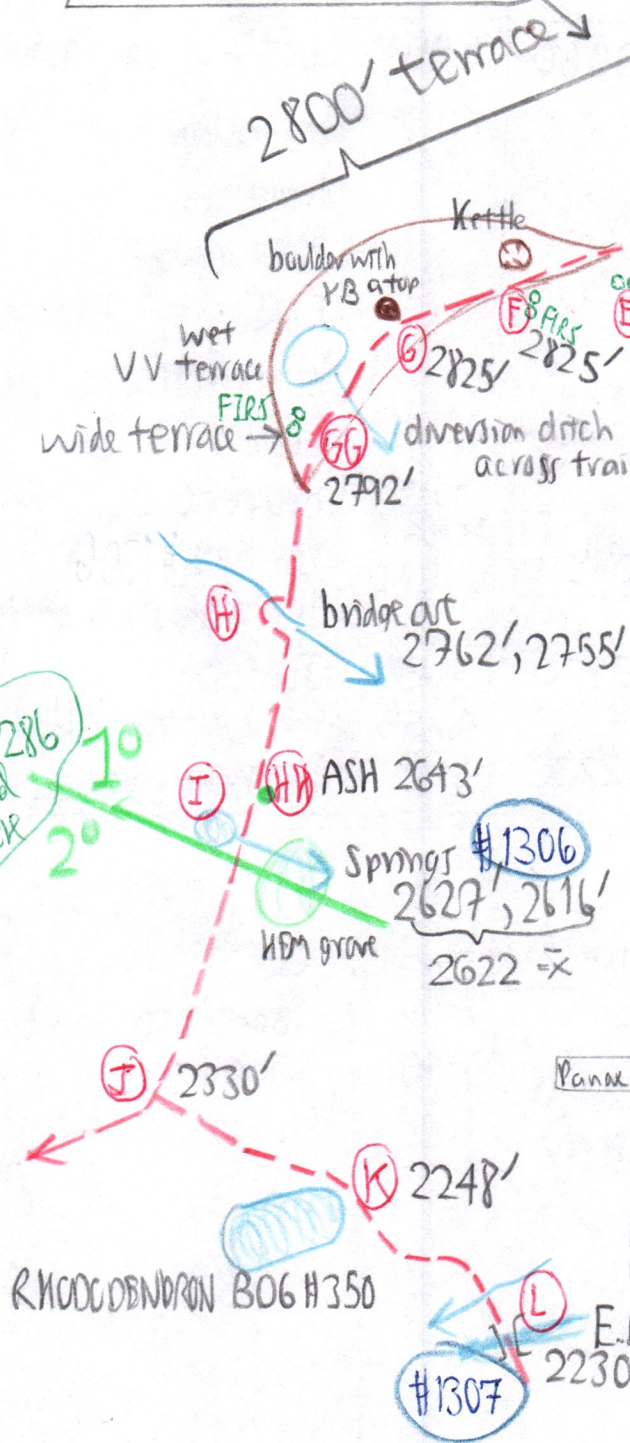 2800' terrace
Kettle
boulder with
YB atop
F
FIRS
2825'
G
2825'
wet
VV terrace
FIRS
wide terrace
GG
diversion ditch
across trai
2792'
H
bridge out
2762', 2755'
286
1°
2°
I
HH
ASH 2643'
Springs
#1306
2627', 2616'
HEM grove
2622 = x̄
J
2330'
Panax
K
2248'
RHODODENDRON BOG #350
L
E.
2230
#1307